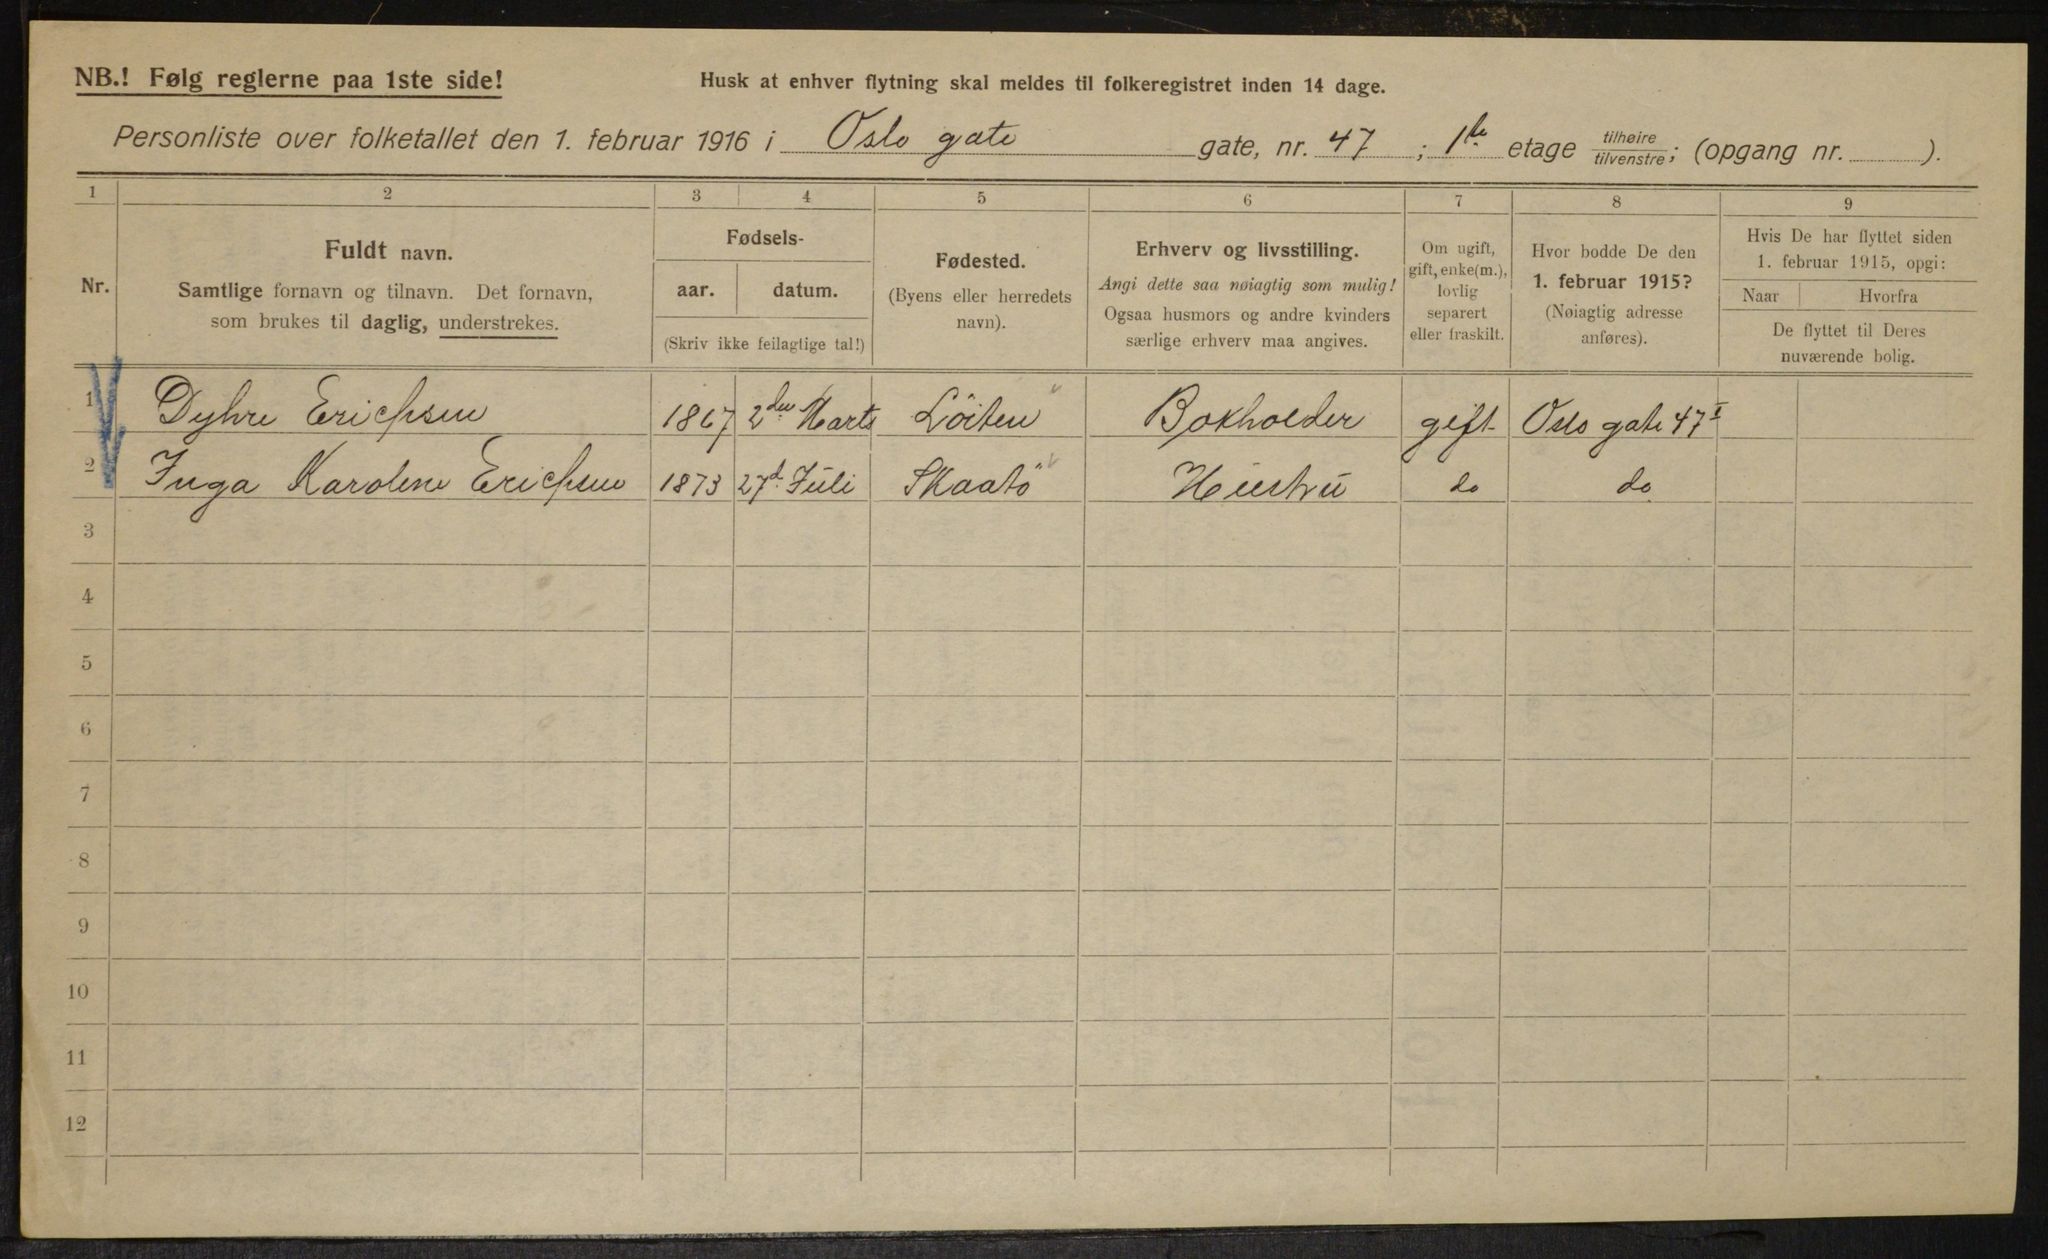 NB.! Følg reglerne paa 1ste side!
Husk at enhver flytning skal meldes til folkeregistret inden 14 dage.
Personliste over folketallet den 1. februar 1916 i Oslo gate gate, nr. 47 ; 1ste etage tilhøire/tilvenstre; (opgang nr. ).
1 2 3 4 5 6 7 8 9
Nr.
Fuldt navn.
Samtlige fornavn og tilnavn. Det fornavn,
som brukes til daglig, understrekes.
Fødsels-
aar. datum.
(Skriv ikke feilagtige tal!)
Fødested.
(Byens eller herredets
navn).
Erhverv og livsstilling.
Angi dette saa nøiagtig som mulig!
Ogsaa husmors og andre kvinders
særlige erhverv maa angives.
Om ugift,
gift, enke(m.),
lovlig
separert
eller fraskilt.
Hvor bodde De den
1. februar 1915?
(Nøiagtig adresse
anføres).
Hvis De har flyttet siden
1. februar 1915, opgi:
Naar Hvorfra
De flyttet til Deres
nuværende bolig.
1 Dyhre Erichsen 1867 2den Marts Löiten Bokholder gift Oslo gate 47 I
2 Inga Karoline Erichsen 1873 27d. Juli Skaatö Hustru do do
3
4
5
6
7
8
9
10
11
12